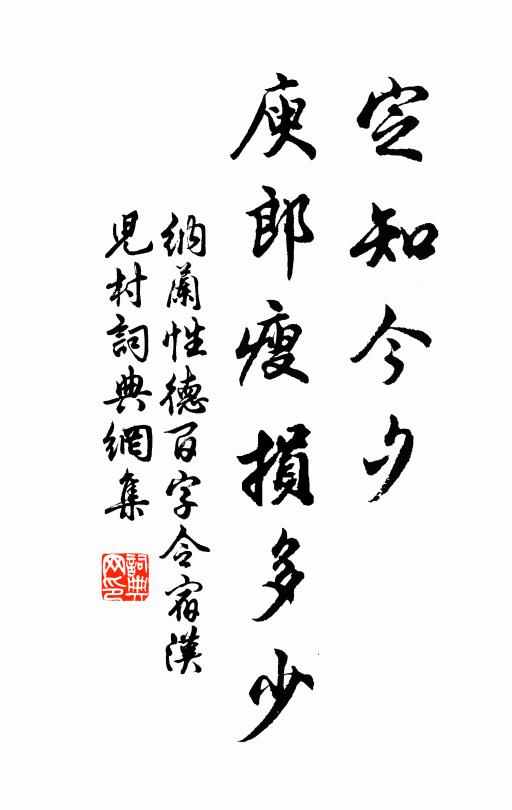 定知今夕
庾郎瘦損多少
納蘭性德百字令宿漢
兒村詞典網集
詞典
网印